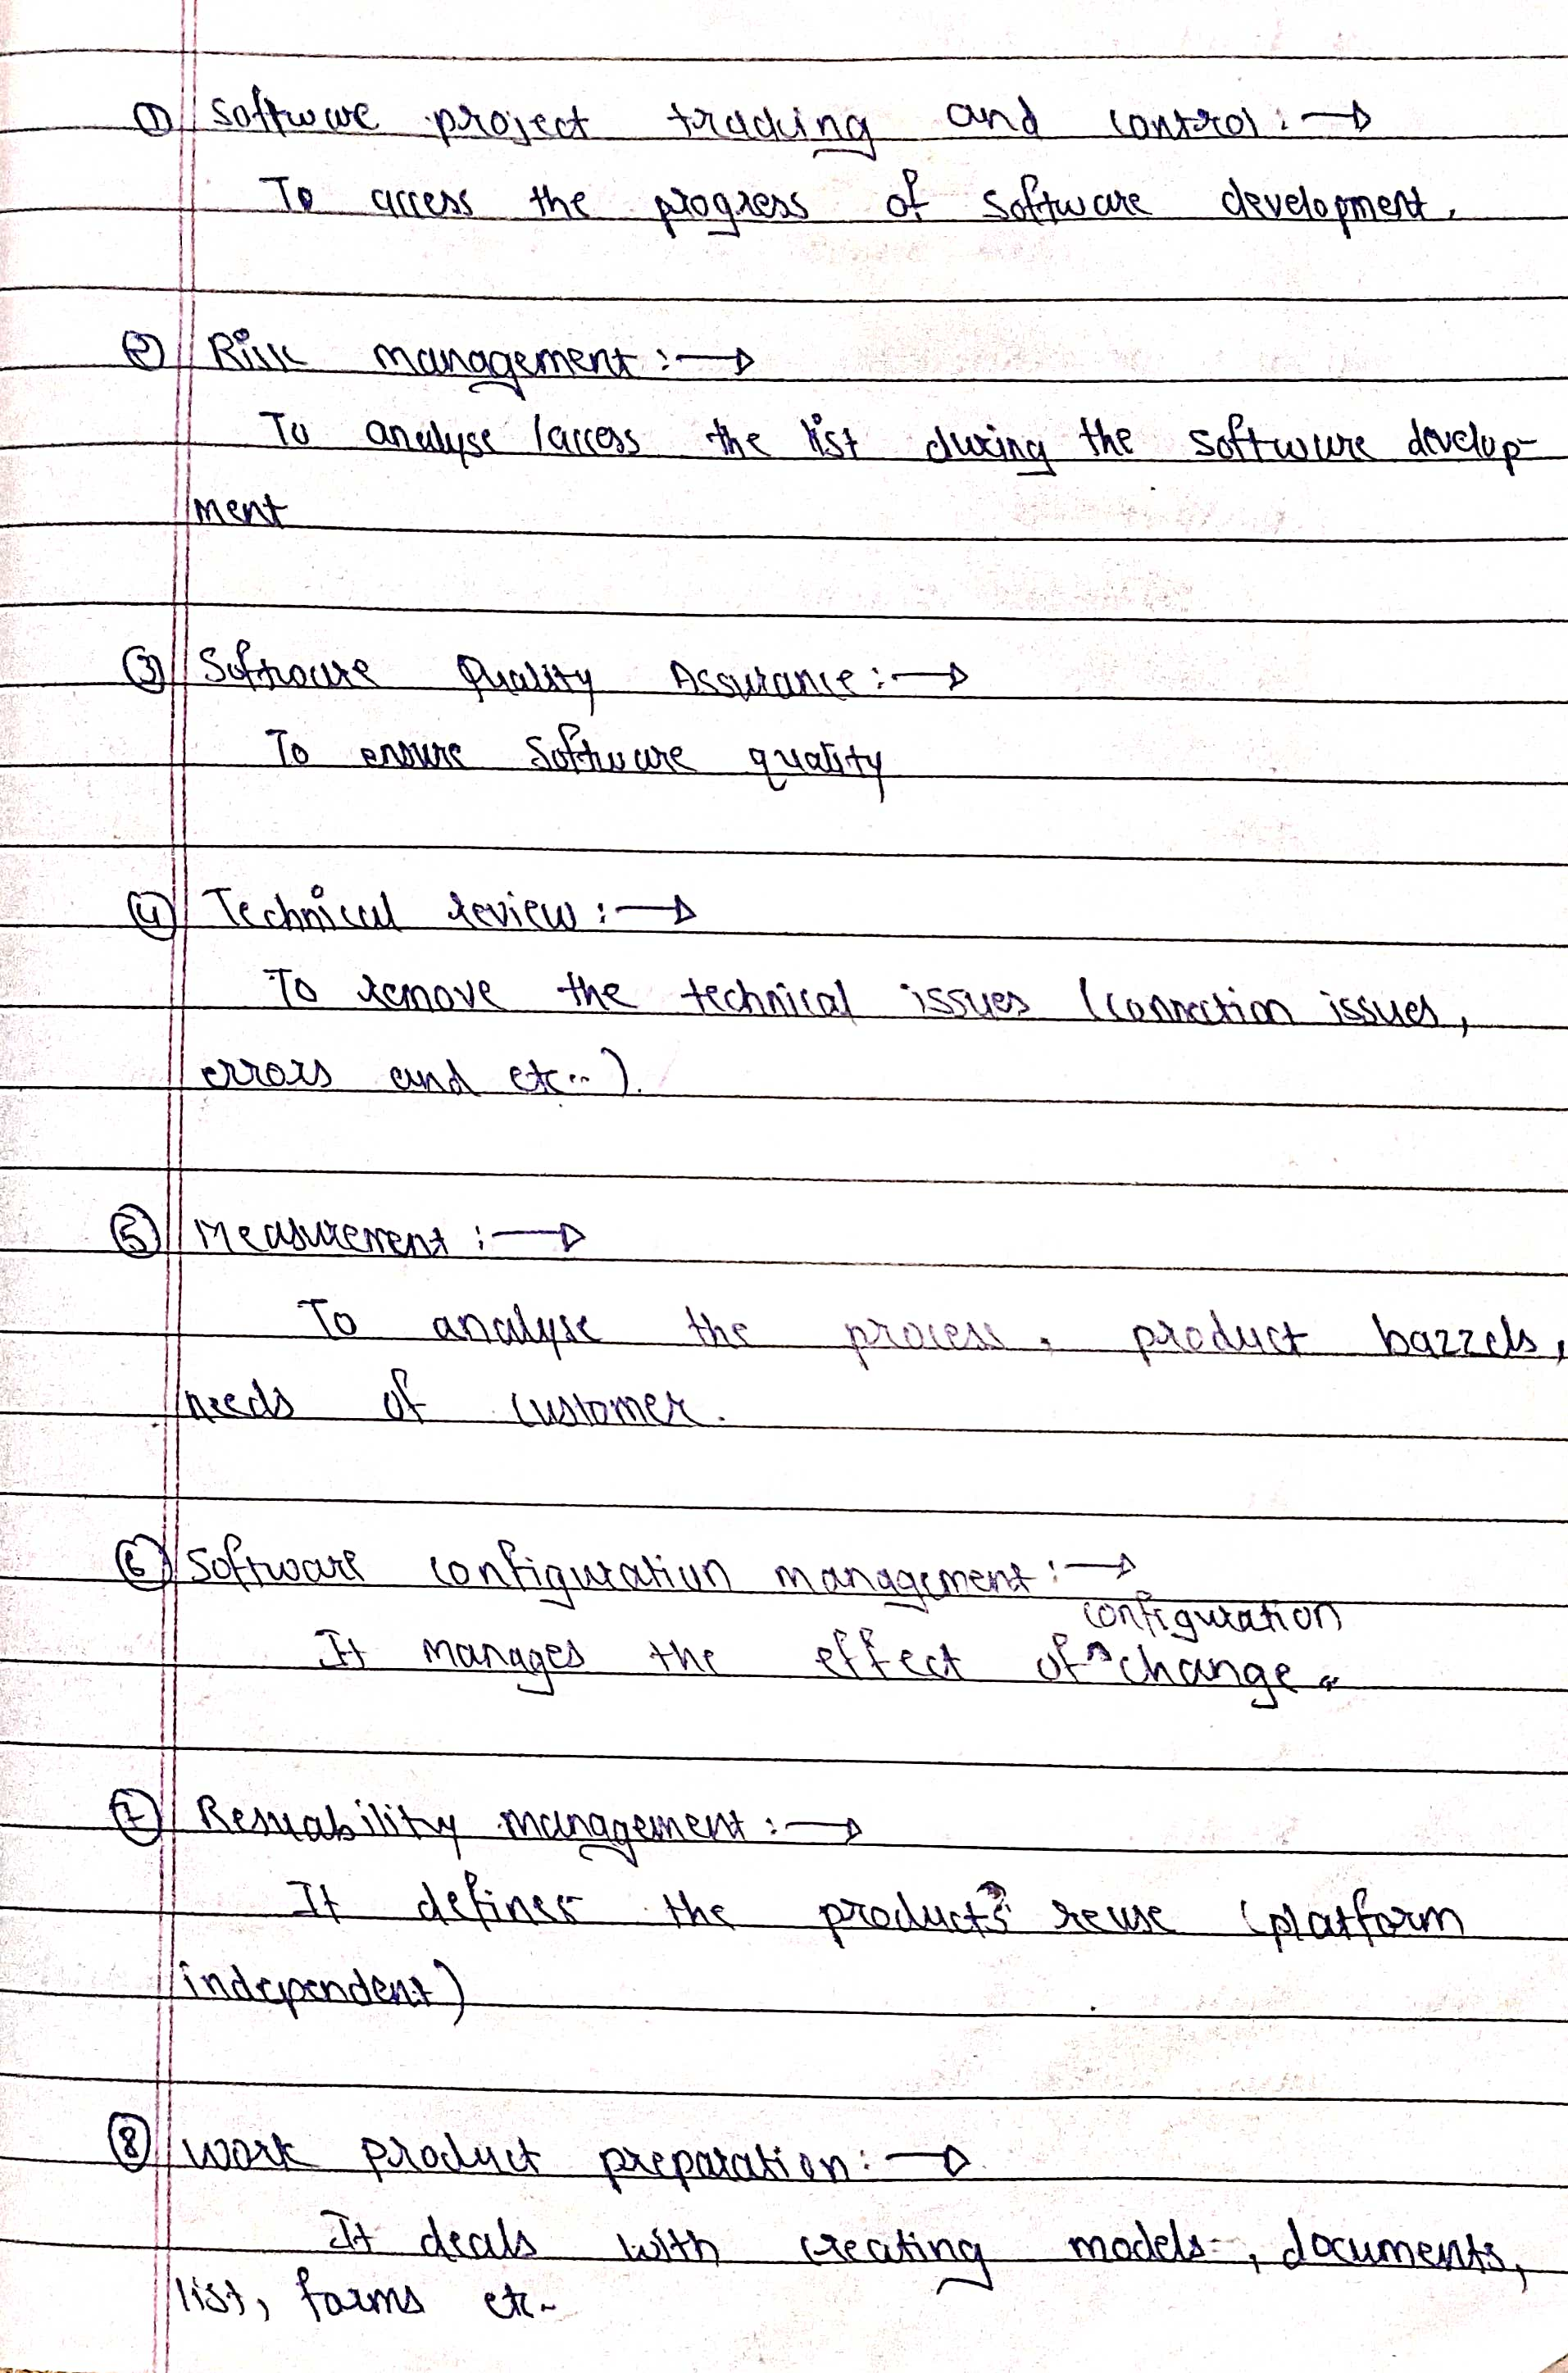 ① Software project tracking and control :→
To access the progress of software development.
② Risk management :→
To analyse / access the list during the software develop-
ment
③ Software Quality Assurance :→
To ensure software quality
④ Technical review :→
To remove the technical issues (connection issues,
errors and etc..).
⑤ Measurement :→
To analyse the process, product bazzels,
needs of customer.
⑥ Software configuration management :→
configuration
It manages the effect of ^ change.
⑦ Resuability management :→
It defines the product's reuse (platform
independent)
⑧ Work product preparation :→
It deals with creating models, documents,
list, forms etc..